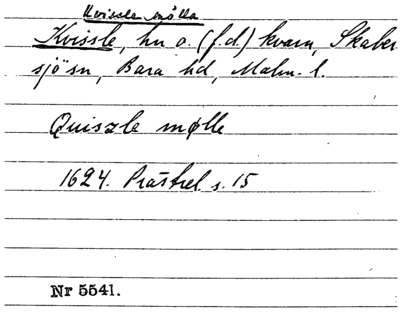 Kvissle mölla
Kvissle, hn o. (f.d.) kvarn, Skaber
sjö sn, Bara hd, Malm. l.
Quiszle mølle
1624. Prästrel. s. 15
Nr 5541.